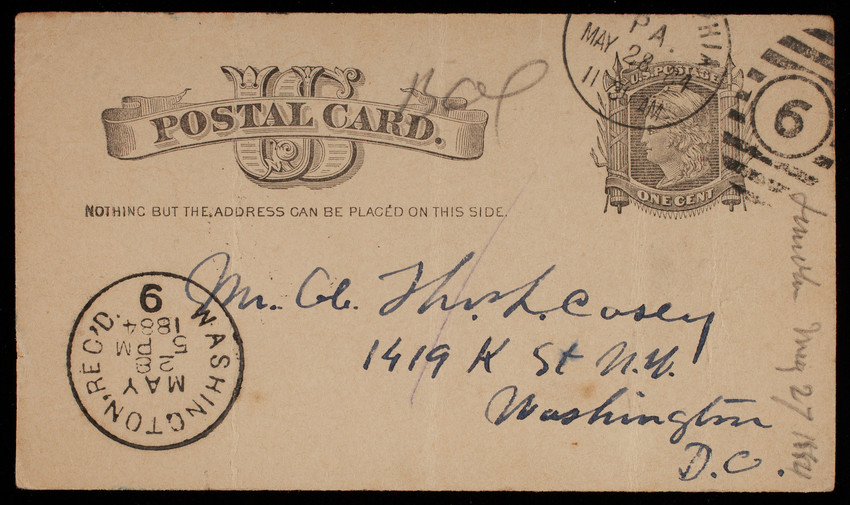 POSTAL CARD.
U.S. POSTAGE
ONE CENT
NOTHING BUT THE ADDRESS CAN BE PLACED ON THIS SIDE.
PA.
MAY 28
11
AM
6
WASHINGTON, REC'D.
MAY
28
5 PM
1884
6
Thos. L. Casey
1419 K St N.W.
Washington
D.C.
May 27 1884